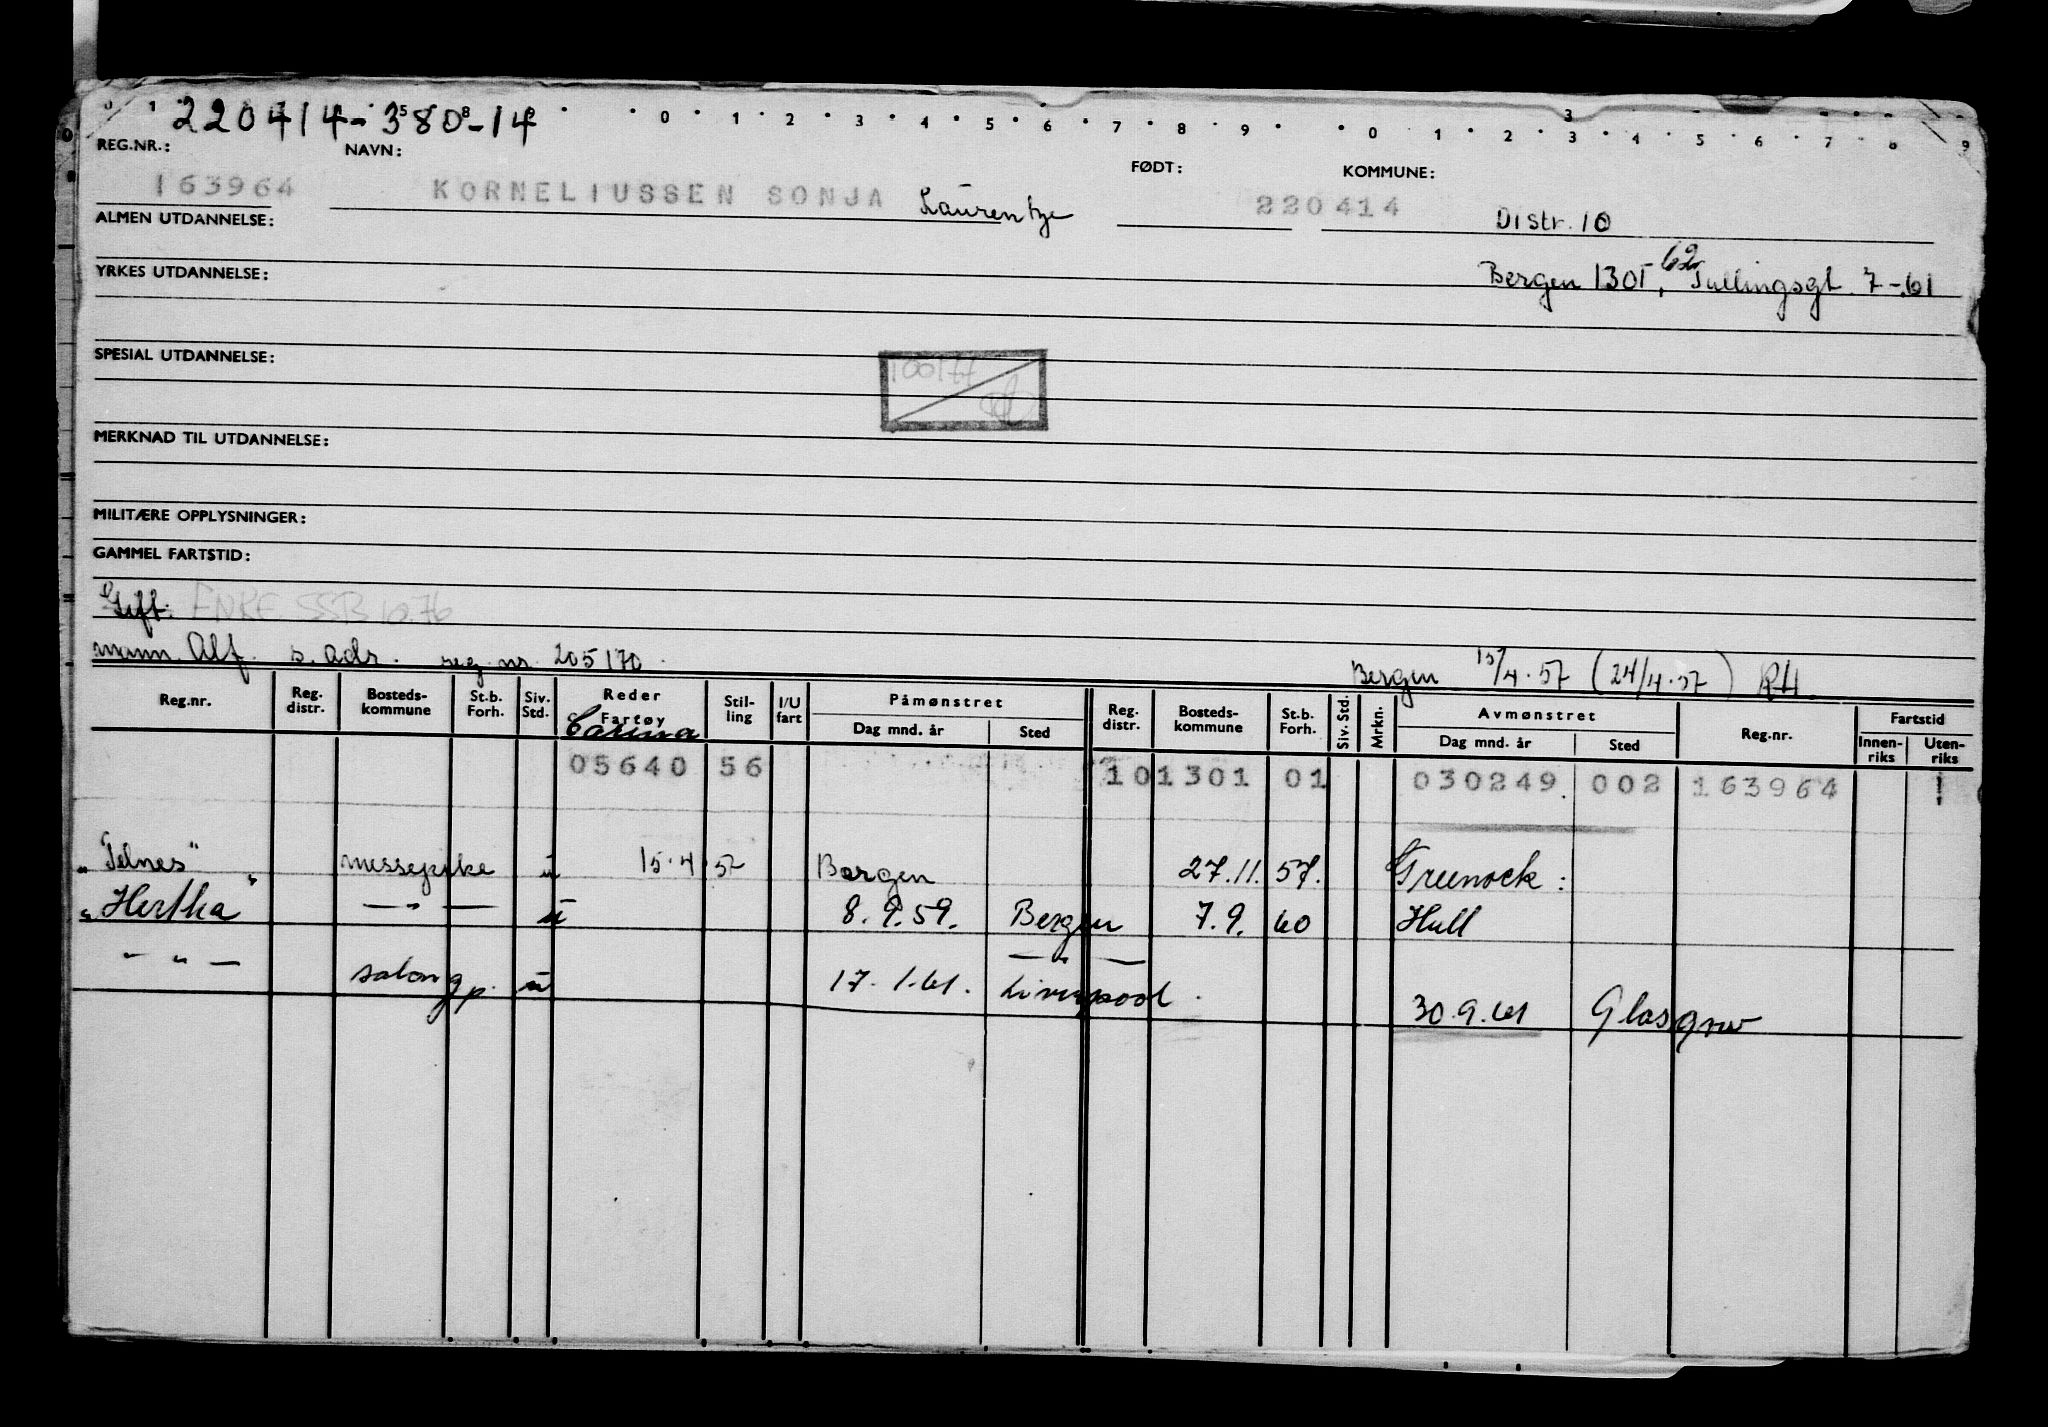 220414-35808-14
0 1 0 1 2 3 4 5 6 7 8 9 0 1 2 3 4 5 6 7 8 9
3
REG.NR.: NAVN: FØDT: KOMMUNE:
163964 KORNELIUSSEN SONJA Laurentze 220414 Distr. 10
ALMEN UTDANNELSE:
YRKES UTDANNELSE: Bergen 1301, 62 Tullingsgt. 7 - 61
SPESIAL UTDANNELSE:
100177
MERKNAD TIL UTDANNELSE:
MILITÆRE OPPLYSNINGER:
GAMMEL FARTSTID:
Gift. ENKE SSB 10.76
mann. Alf. s. adr. reg. nr. 205170. Bergen 15/4.57 (24/4.57) RH
Reg.nr. Reg. distr. Bosteds-kommune St.b. Forh. Siv. Std. Reder Fartøy Stil-ling I/U fart Påmønstret Dag mnd. år Sted Reg. distr. Bosteds-kommune St.b. Forh. Siv. Std. Mrkn. Avmønstret Dag mnd. år Sted Reg.nr. Fartstid Innen-riks Uten-riks
Carina
05640 56 101301 01 030249 002 163964
"Telnes" messepike u 15.4 57 Bergen 27.11.57. Greenock:
"Hertha" — " — u 8.9.59. Bergen 7.9.60 Hull
— " — salongp. u 17.1.61. Liverpool — " — 30.9.61 Glasgow